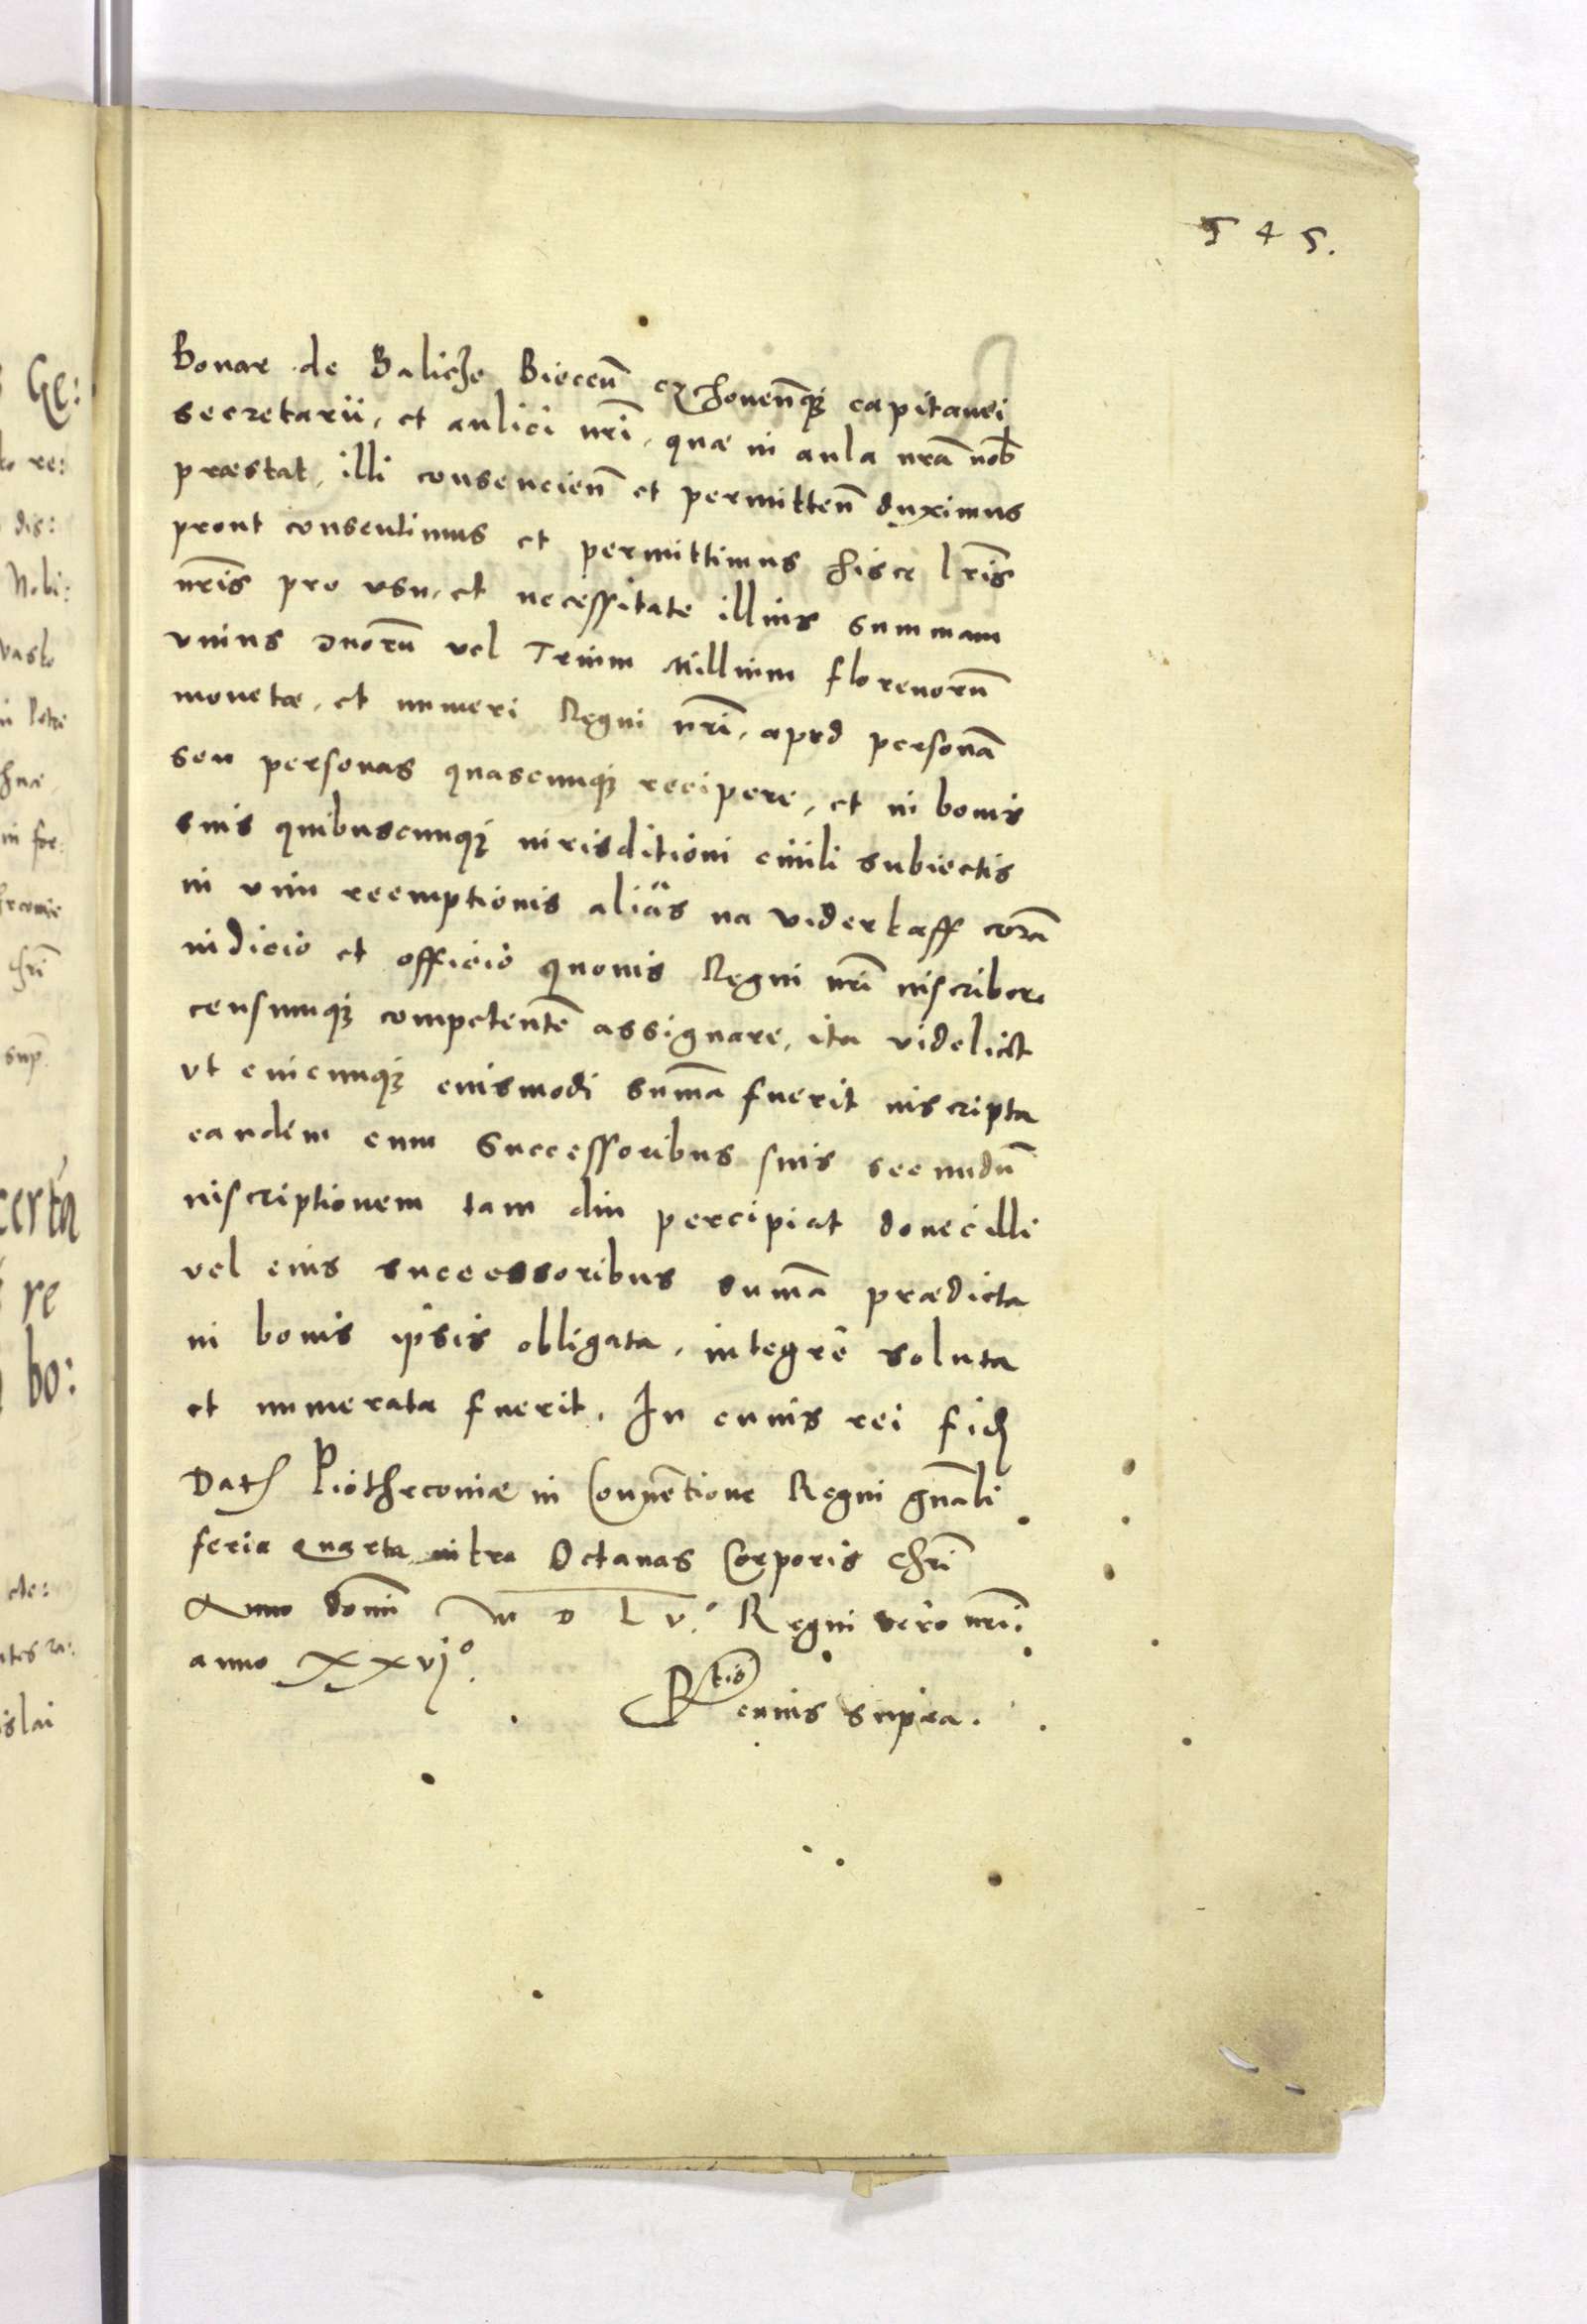 545.
Bonar de Balicze Bieceñ czchoueñqꝫ capitanei
secretarii, et aulici nrĩ, quæ in aula nrã nob
præstat, illi consencieñ et permitteñ duximus
prout consentimus et permittimus hisce lrĩs
nrĩs pro vsu, et necessitate illius summam
vnius duorũ vel Trium Millium florenorũ
monetæ, et numeri Regni nrĩ, apud personã
seu personas quascunqꝫ recipere, et in bonis
suis quibuscunqꝫ iurisditioni ciuili subiectis
in vim reemptionis aliäs na viderkaff corã
iudicio et officio quouis Regni nrĩ inscribere
censumqꝫ competentẽ assignare, ita videlicet
vt cuicunqꝫ eiusmodi sum̃a fuerit inscripta
eandem cum Successoribus suis secundũ
inscriptionem tam diu percipiat donec illi
vel eius successoribus sum̃a prædicta
in bonis ipsis obligata, integrè soluta
et numerata fuerit. In cuius rei fiđ
Dat Piotrcoviæ in Conuẽtione Regni gnãli
feria quarta intra Octauas Corporis Chrĩ
Anno Domĩ M D L v.º Regni vero nrĩ.
anno XXvjº.
Rtio cuius supra.
Ge:
re:
dis:
Nobi:
certa
re
bo: